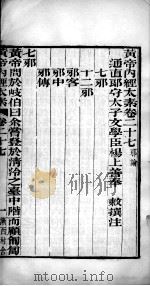 黃帝內經太素卷二十七 邪論
通直郎守太子文學臣楊上善奉 敕撰注
七邪
十二邪
邪客
邪中
邪傳
七邪
黃帝問於岐伯曰余嘗登於清泠之臺中階而顧匍匐
黃帝內經太素 卷二十七 一 漸西村舍